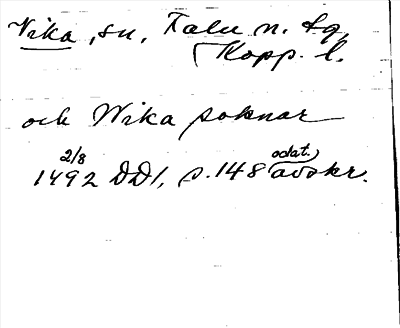 Vika, sn, Falu n. fg,
Kopp. l.
och Wika soknar
2/8 odat.)
1492 DD1, s. 148 avskr.